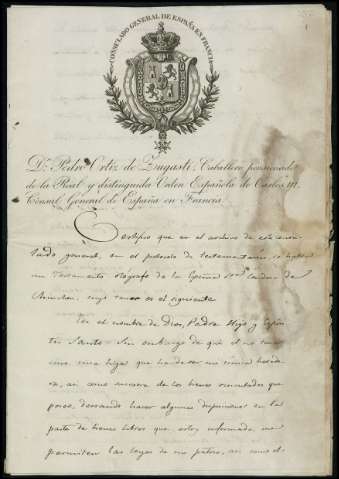 CONSULADO GENERAL DE ESPAÑA EN FRANCIA
Dn. Pedro Ortiz de Zugasti, Caballero pensionado
de la Real y distinguida Orden Española de Carlos III,
Cónsul General de España en Francia
Certifico que en el archivo de este consu-
lado general, en el protocolo de testamentarias,
un testamento ológrafo de la Condesa de
Chinchon, cuyo tenor es el siguiente
En el nombre de Dios, Padre Hijo y Espíri-
tu Santo: Sin embargo de que el no tener
sino una hija que ha de ser mi única herede-
ra, asi como sucesora de los bienes vinculados que
poseo, deseando hacer algunas disposiciones en la
parte de bienes libres que estoy informada me
permiten las leyes de mi patria, asi como el